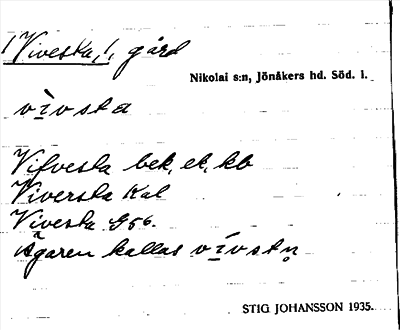 /Viveska,/, gård
Nikolai s:n, Jönåkers hd. Söd. l.
vìvsta
Vifvesta bek, et, kb
Viversta Kal
Vivesta G56.
Ägaren kallas vívstn̥
STIG JOHANSSON 1935.